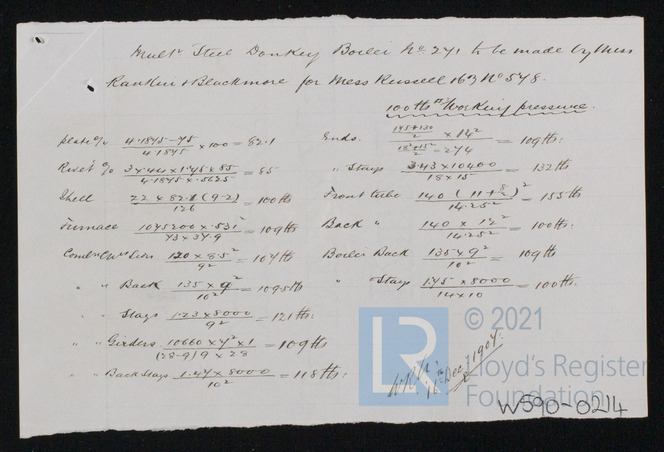 Multr Steel Donkey Boiler No 271 to be made by Mess
Rankin & Blackmore for Mess Russell & Co No 548.
100 lbs Working pressure.
plate % 4.1875-.75 / 4.1875 × 100 = 82.1
Rivet % 3×.44×1.75×85 / 4.1875×.5625 = 85
Shell 22 × 82.1 (9-2) / 126 = 100 lbs
Furnace 1075200 × .531² / 73 × 37.9 = 109 lbs
Combn Chr Sides 120 × 8.5² / 9² = 107 lbs
" " Back 135 × 9² / 10² = 109.5 lbs
" " Stays 1.23 × 8000 / 9² = 121 lbs:
" " Girders 10660 × 7² × 1 / (28-9) 9 × 28 = 109 lbs
" " Back Stays 1.47 × 8000 / 10² = 118 lbs:
Ends. × 14² = 109 lbs:
" Stays 3.43 × 10400 / 18 × 15 = 132 lbs
Front tube 140 (11 + 8/2)² / 14.25² = 155 lbs
Back " 140 × 12² / 14.25² = 100 lbs:
Boiler Back 135 × 9² / 10² = 109 lbs
" Stays 1.75 × 8000 / 14 × 10 = 100 lbs:
11th Dec 1907.
© 2021
LR
Lloyd's Register
Foundation
W590-0214